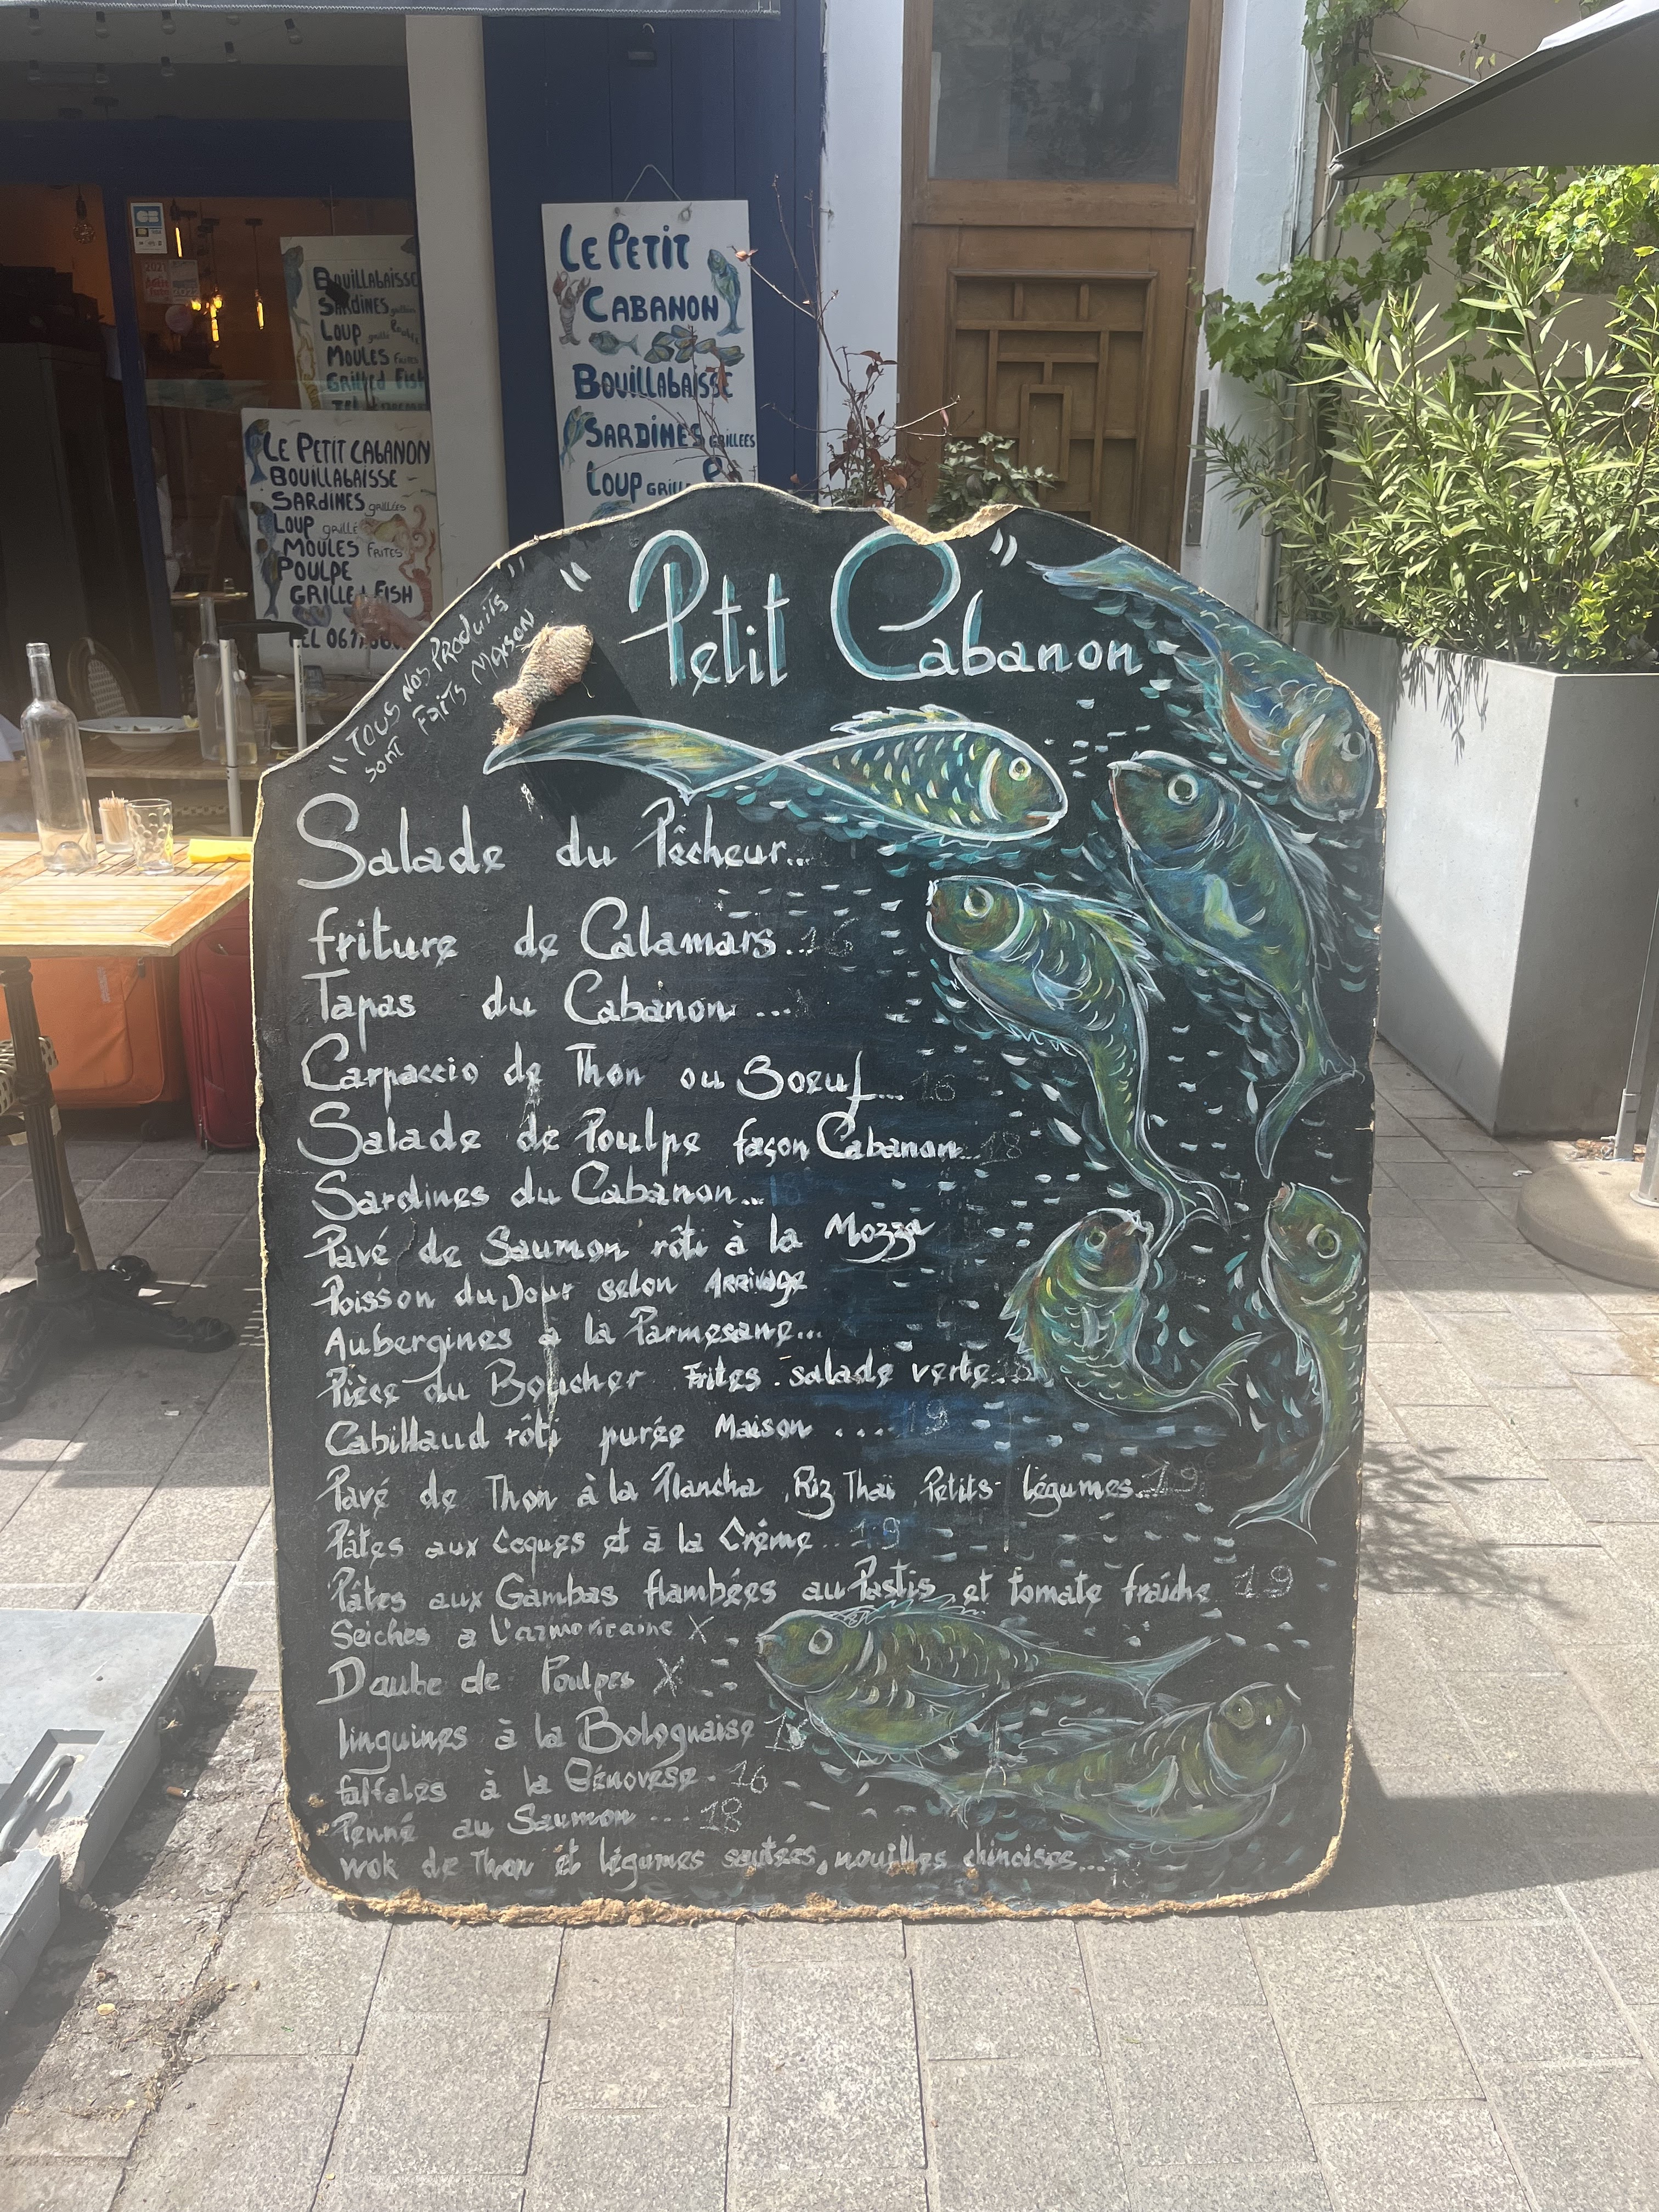 LE PETIT
CABANON
BOUILLABAISSE
SARDINES GRILLEES
LOUP
BOUILLABAISSE
SARDINES
LOUP
MOULES
GRILLED FISH
LE PETIT CABANON
BOUILLABAISSE
SARDINES grillées
LOUP grillé
MOULES FRITES
POULPE
GRILLED FISH
TEL
"TOUS NOS PRODUITS"
SONT FAITS MAISON
"Petit Cabanon"
Salade du Pêcheur...
friture de Calamars...16
Tapas du Cabanon...
Carpaccio de Thon ou Boeuf... 16
Salade de Poulpe façon Cabanon... 18
Sardines du Cabanon... 18
Pavé de Saumon rôti à la Mozza
Poisson du Jour selon ARRIVAGE
Aubergines a la Parmesane...
Pièce du Boucher Frites. salade verte...
Cabillaud rôti purée Maison .... 19
Pavé de Thon à la Plancha, Riz Thaï, Petits légumes...19
Pâtes aux Coques et à la Crème...19
Pâtes aux Gambas flambées au Pastis et tomate fraîche 19
Seiches a L'armoricaine X
Daube de Poulpes X
linguines à la Bolognaise
falfales à la Génovese. 16
Penné au Saumon ... 18
wok de Thon et légumes sautées, nouilles chinoises...